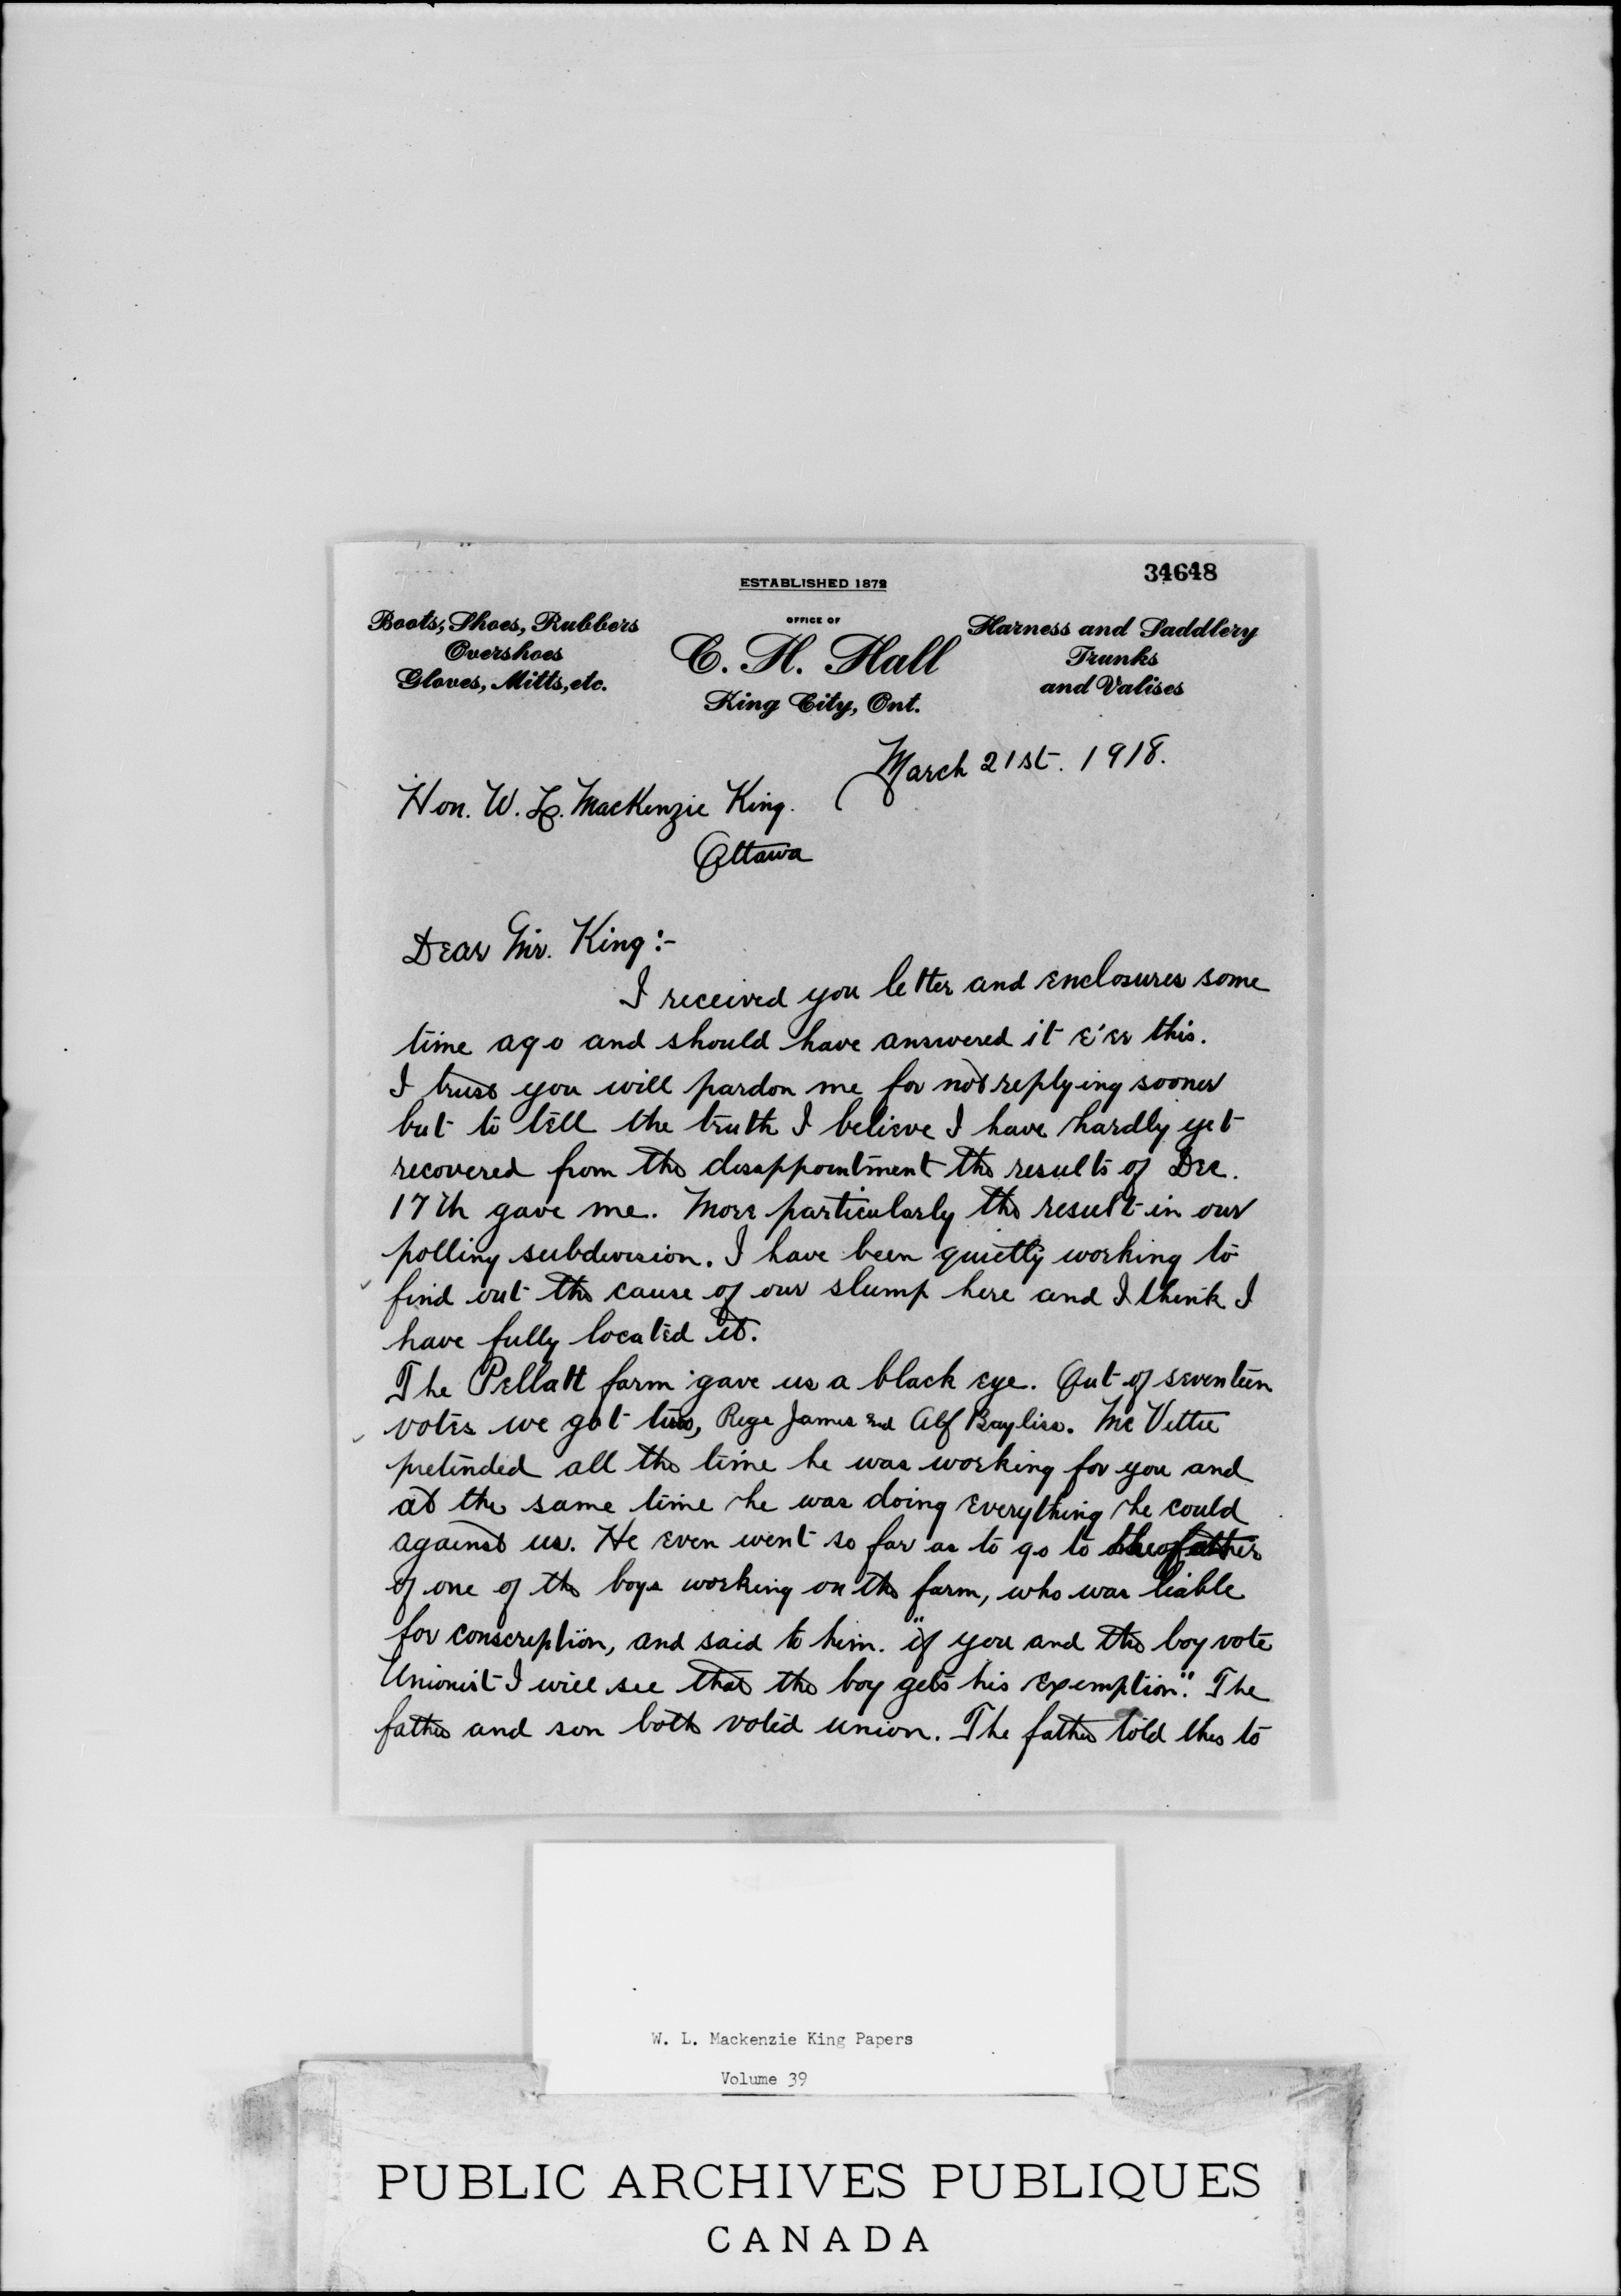 34648
ESTABLISHED 1872
Boots, Shoes, Rubbers
Overshoes
Gloves, Mitts, etc.
OFFICE OF
C. H. Hall
King City, Ont.
Harness and Saddlery
Trunks
and Valises
March 21st. 1918.
Hon. W. L. MacKenzie King.
Ottawa
Dear Mr. King:-
I received you letter and enclosures some
time ago and should have answered it e'er this.
I trust you will pardon me for not replying sooner
but to tell the truth I believe I have hardly yet
recovered from the disappointment the results of Dec.
17th gave me. More particularly the result in our
polling subdivision. I have been quietly working to
find out the cause of our slump here and I think I
have fully located it.
The Pellatt farm gave us a black eye. Out of seventeen
votes we got two, Rege James and Alf Bayliss. McVettie
pretended all the time he was working for you and
at the same time he was doing everything he could
against us. He even went so far as to go to the father
of one of the boys working on the farm, who was liable
for conscription, and said to him. "if you and the boy vote
Unionist I will see that the boy gets his exemption". The
father and son both voted union. The father told this to
W. L. Mackenzie King Papers
Volume 39
PUBLIC ARCHIVES PUBLIQUES
CANADA